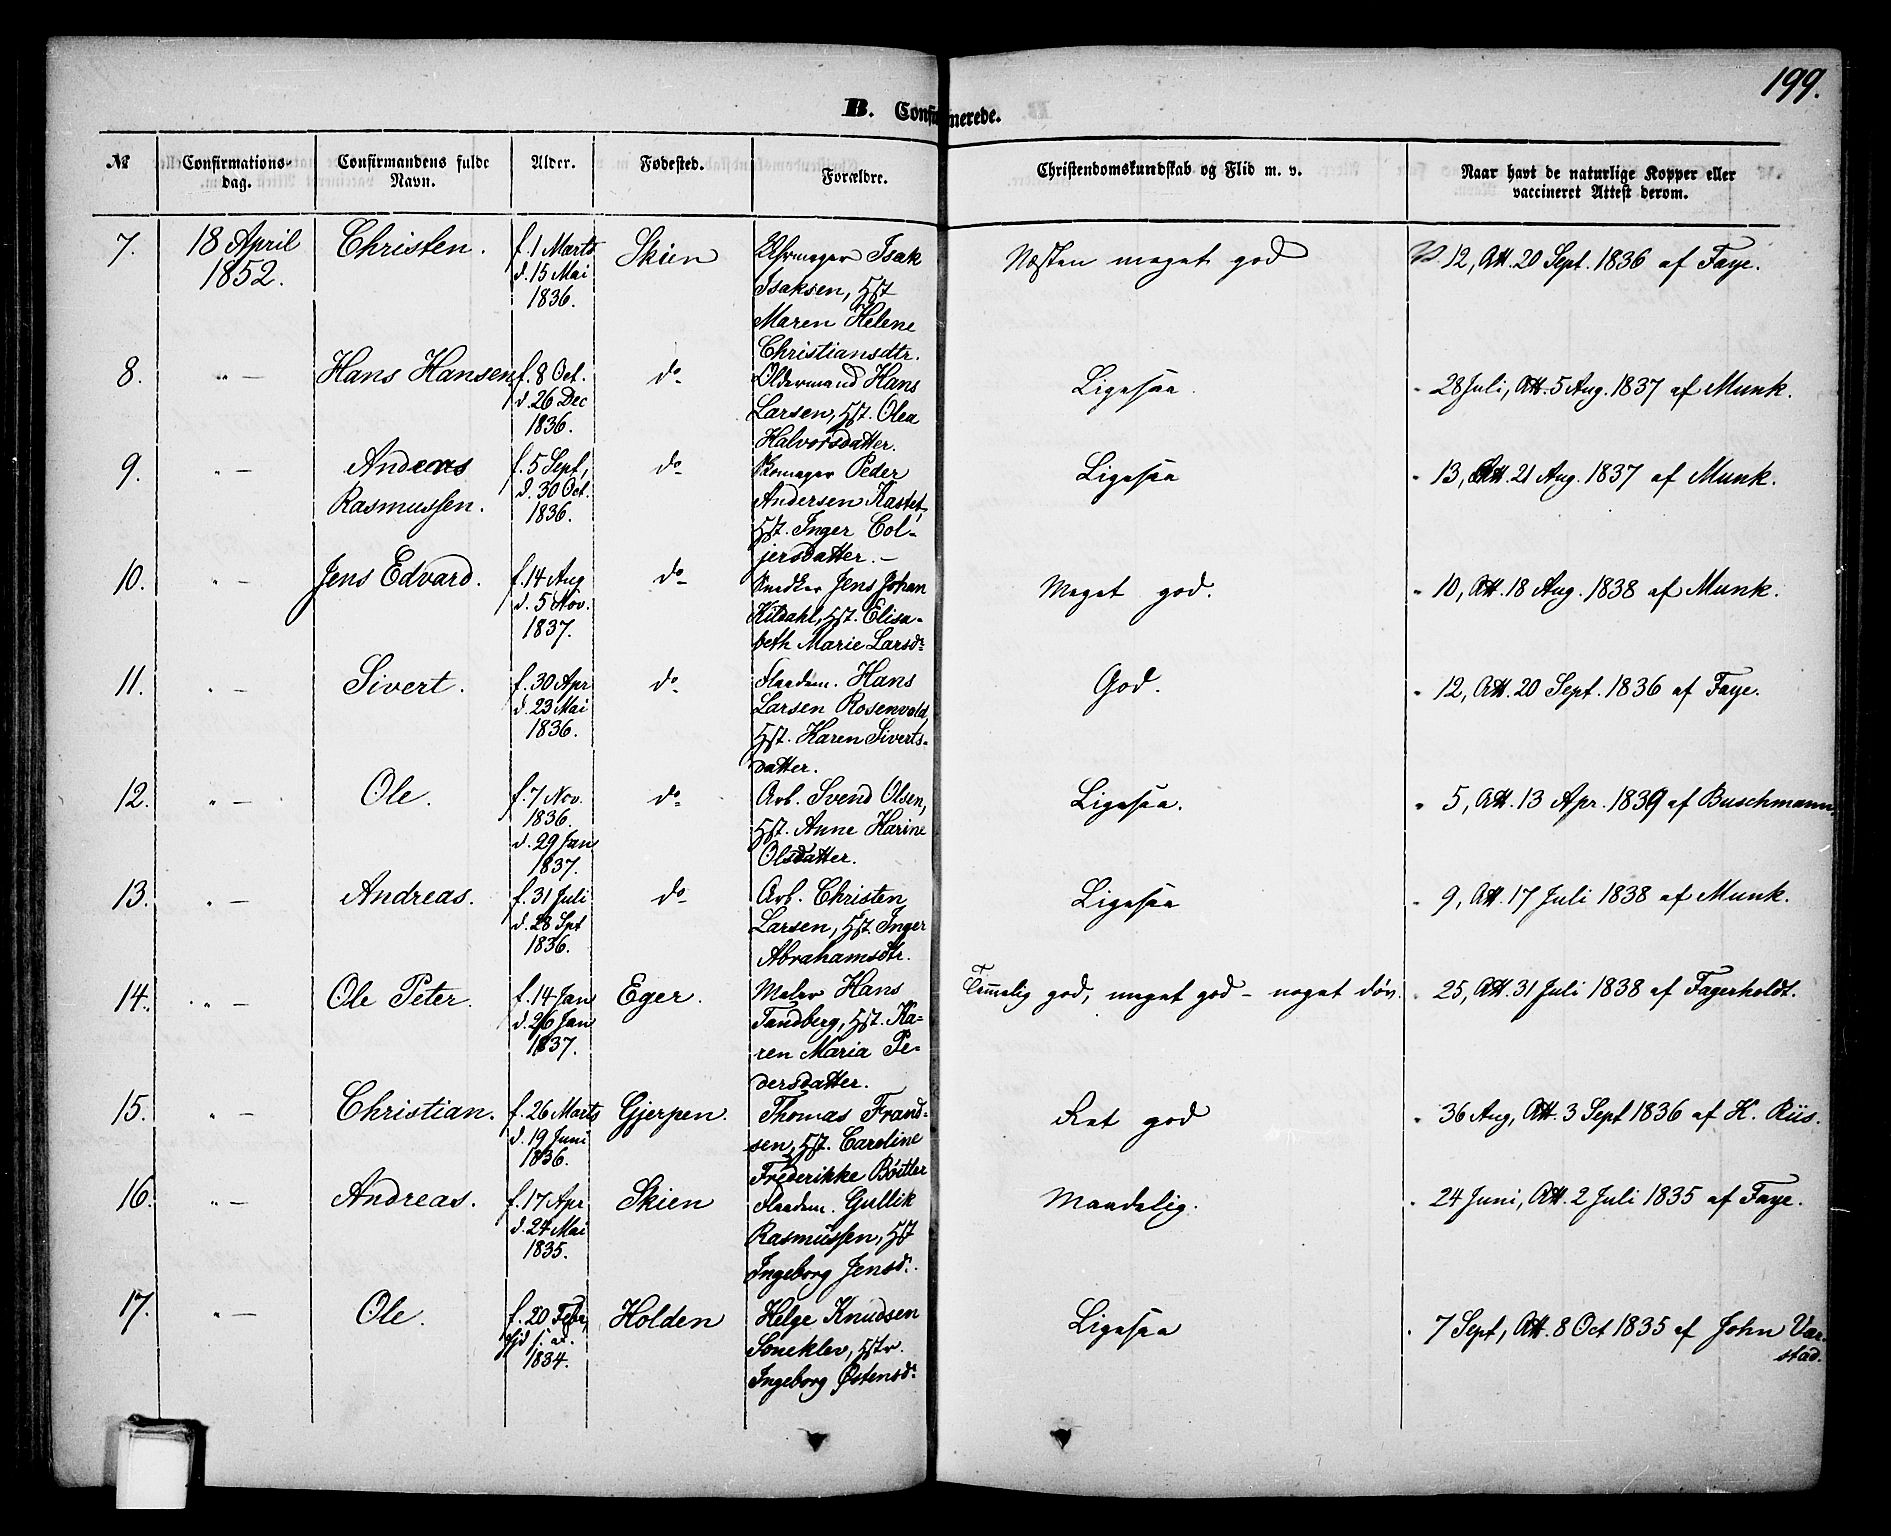 199.
B. Confirmerede.
No
Confirmations-
dag.
Confirmandens fulde
Navn.
Alder.
Fødested.
Forældre.
Christendomskundskab og Flid m. v.
Naar havt de naturlige Kopper eller
vaccineret Attest derom.
7. 18 April Christen. f. 1 Marts Skien Isak Næsten meget god V. 12, Att. 20 Sept. 1836 af Faye.
1852. d. 15 Mai Isaksen, Hst
1836. Maren Helene
Christiansdtr.
8. " — Hans Hansen f. 8 Oct. do Oldermand Hans Ligesaa. " 28 Juli, Att. 5 Aug. 1837 af Munk.
d. 26 Dec Larsen, Hst. Olea
1836. Halvorsdatter.
9. " — Anders f. 5 Sept, do Skomager Peder Ligesaa " 13, Att. 21 Aug. 1837 af Munk.
Rasmussen. d. 30 Oct. Andersen Kastet,
1836. Hst. Inger Col-
jersdatter. —
10. " — Jens Edvard. f. 14 Aug do Snedker Jens Johan Meget god. " 10, Att. 18 Aug. 1838 af Munk.
d. 5 Nov. Kildahl, Hst. Elisa-
1837. beth Marie Larsdr
11. " — Sivert. f. 30 Apr do Flaadm. Hans God. " 12, Att. 20 Sept. 1836 af Faye.
d. 23 Mai Larsen Rosenvold,
1836. Hst. Karen Siverts-
datter.
12. " — Ole. f. 7 Nov. do Arb. Svend Olsen, Ligesaa. " 5, Att. 13 Apr. 1839 af Buschmann.
1836. Hst. Anne Karine
d. 29 Jan Olsdatter.
1837.
13. " — Andreas. f. 31 Juli do Arb. Christen Ligesaa " 9, Att. 17 Juli 1838 af Munk.
d. 28 Spt Larsen, Hst. Inger
1836. Abrahamsdtr.
14. " — Ole Peter. f. 14 Jan Eger. Maler Hans Temelig god, meget god – noget døv. " 25, Att. 31 Juli 1838 af Fagerholdt.
d. 26 Jan Tandberg, Hst. Ka-
1837. ren Maria Pe-
dersdatter.
15. " — Christian. f. 26 Marts Gjerpen. Thomas Frand- Ret god " 36 Aug, Att. 3 Sept 1836 af K. Riis.
d. 19 Juni sen, Hst. Caroline
1836. Frederikke Bøitler
16. " — Andreas. f. 17 Apr Skien Flaadm. Gullik Maadelig. " 24 Juni, Att. 2 Juli 1835 af Faye.
d. 24 Mai Rasmussen, Hst
1835. Ingeborg Jensdr.
17. " — Ole. f. 20 Febr, Holden Helge Knudsen Ligesaa " 7 Sept, Att. 8 Oct 1835 af John Var-
hjd Soneklev, Hstr. stad.
1834. Ingeborg Østensdr